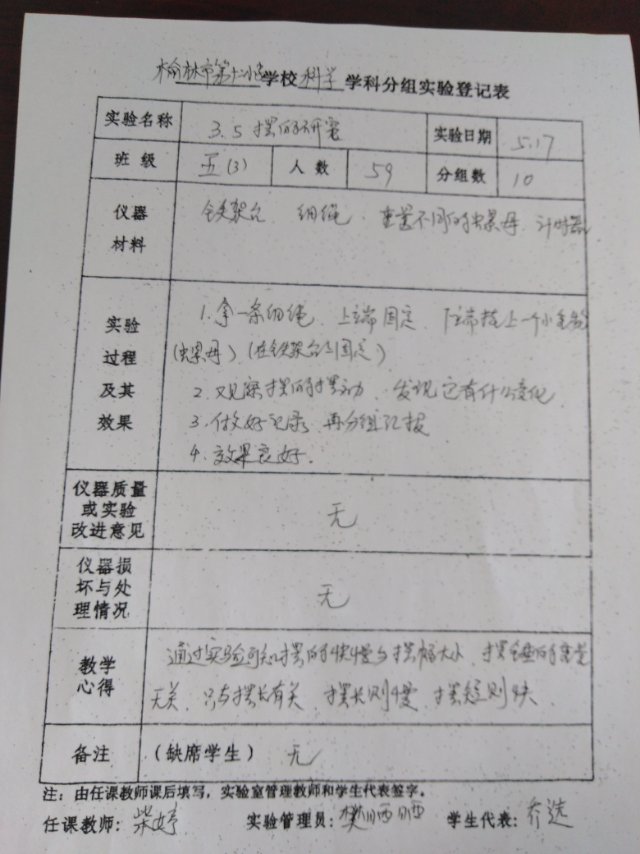 榆林市第十小学校 科学 学科分组实验登记表
实验名称 3.5 摆的研究 实验日期 5.17
班级 五(3) 人数 59 分组数 10
仪器材料 铁架台 细绳 重量不同的螺母 计时器
实验过程及其效果
1. 拿一条细绳 上端固定 下端挂上一个小重物
(螺母)(在铁架台上固定)
2. 观察摆的摆动 发现它有什么变化
3. 做好记录 再分组汇报
4. 效果良好.
仪器质量或实验改进意见 无
仪器损坏与处理情况 无
教学心得
通过实验可知摆的快慢与摆幅大小、摆锤的重量
无关 只与摆长有关 摆长则慢 摆短则快
备注 (缺席学生) 无
注:由任课教师课后填写,实验室管理教师和学生代表签字。
任课教师:柴婷 实验管理员:樊 学生代表:乔